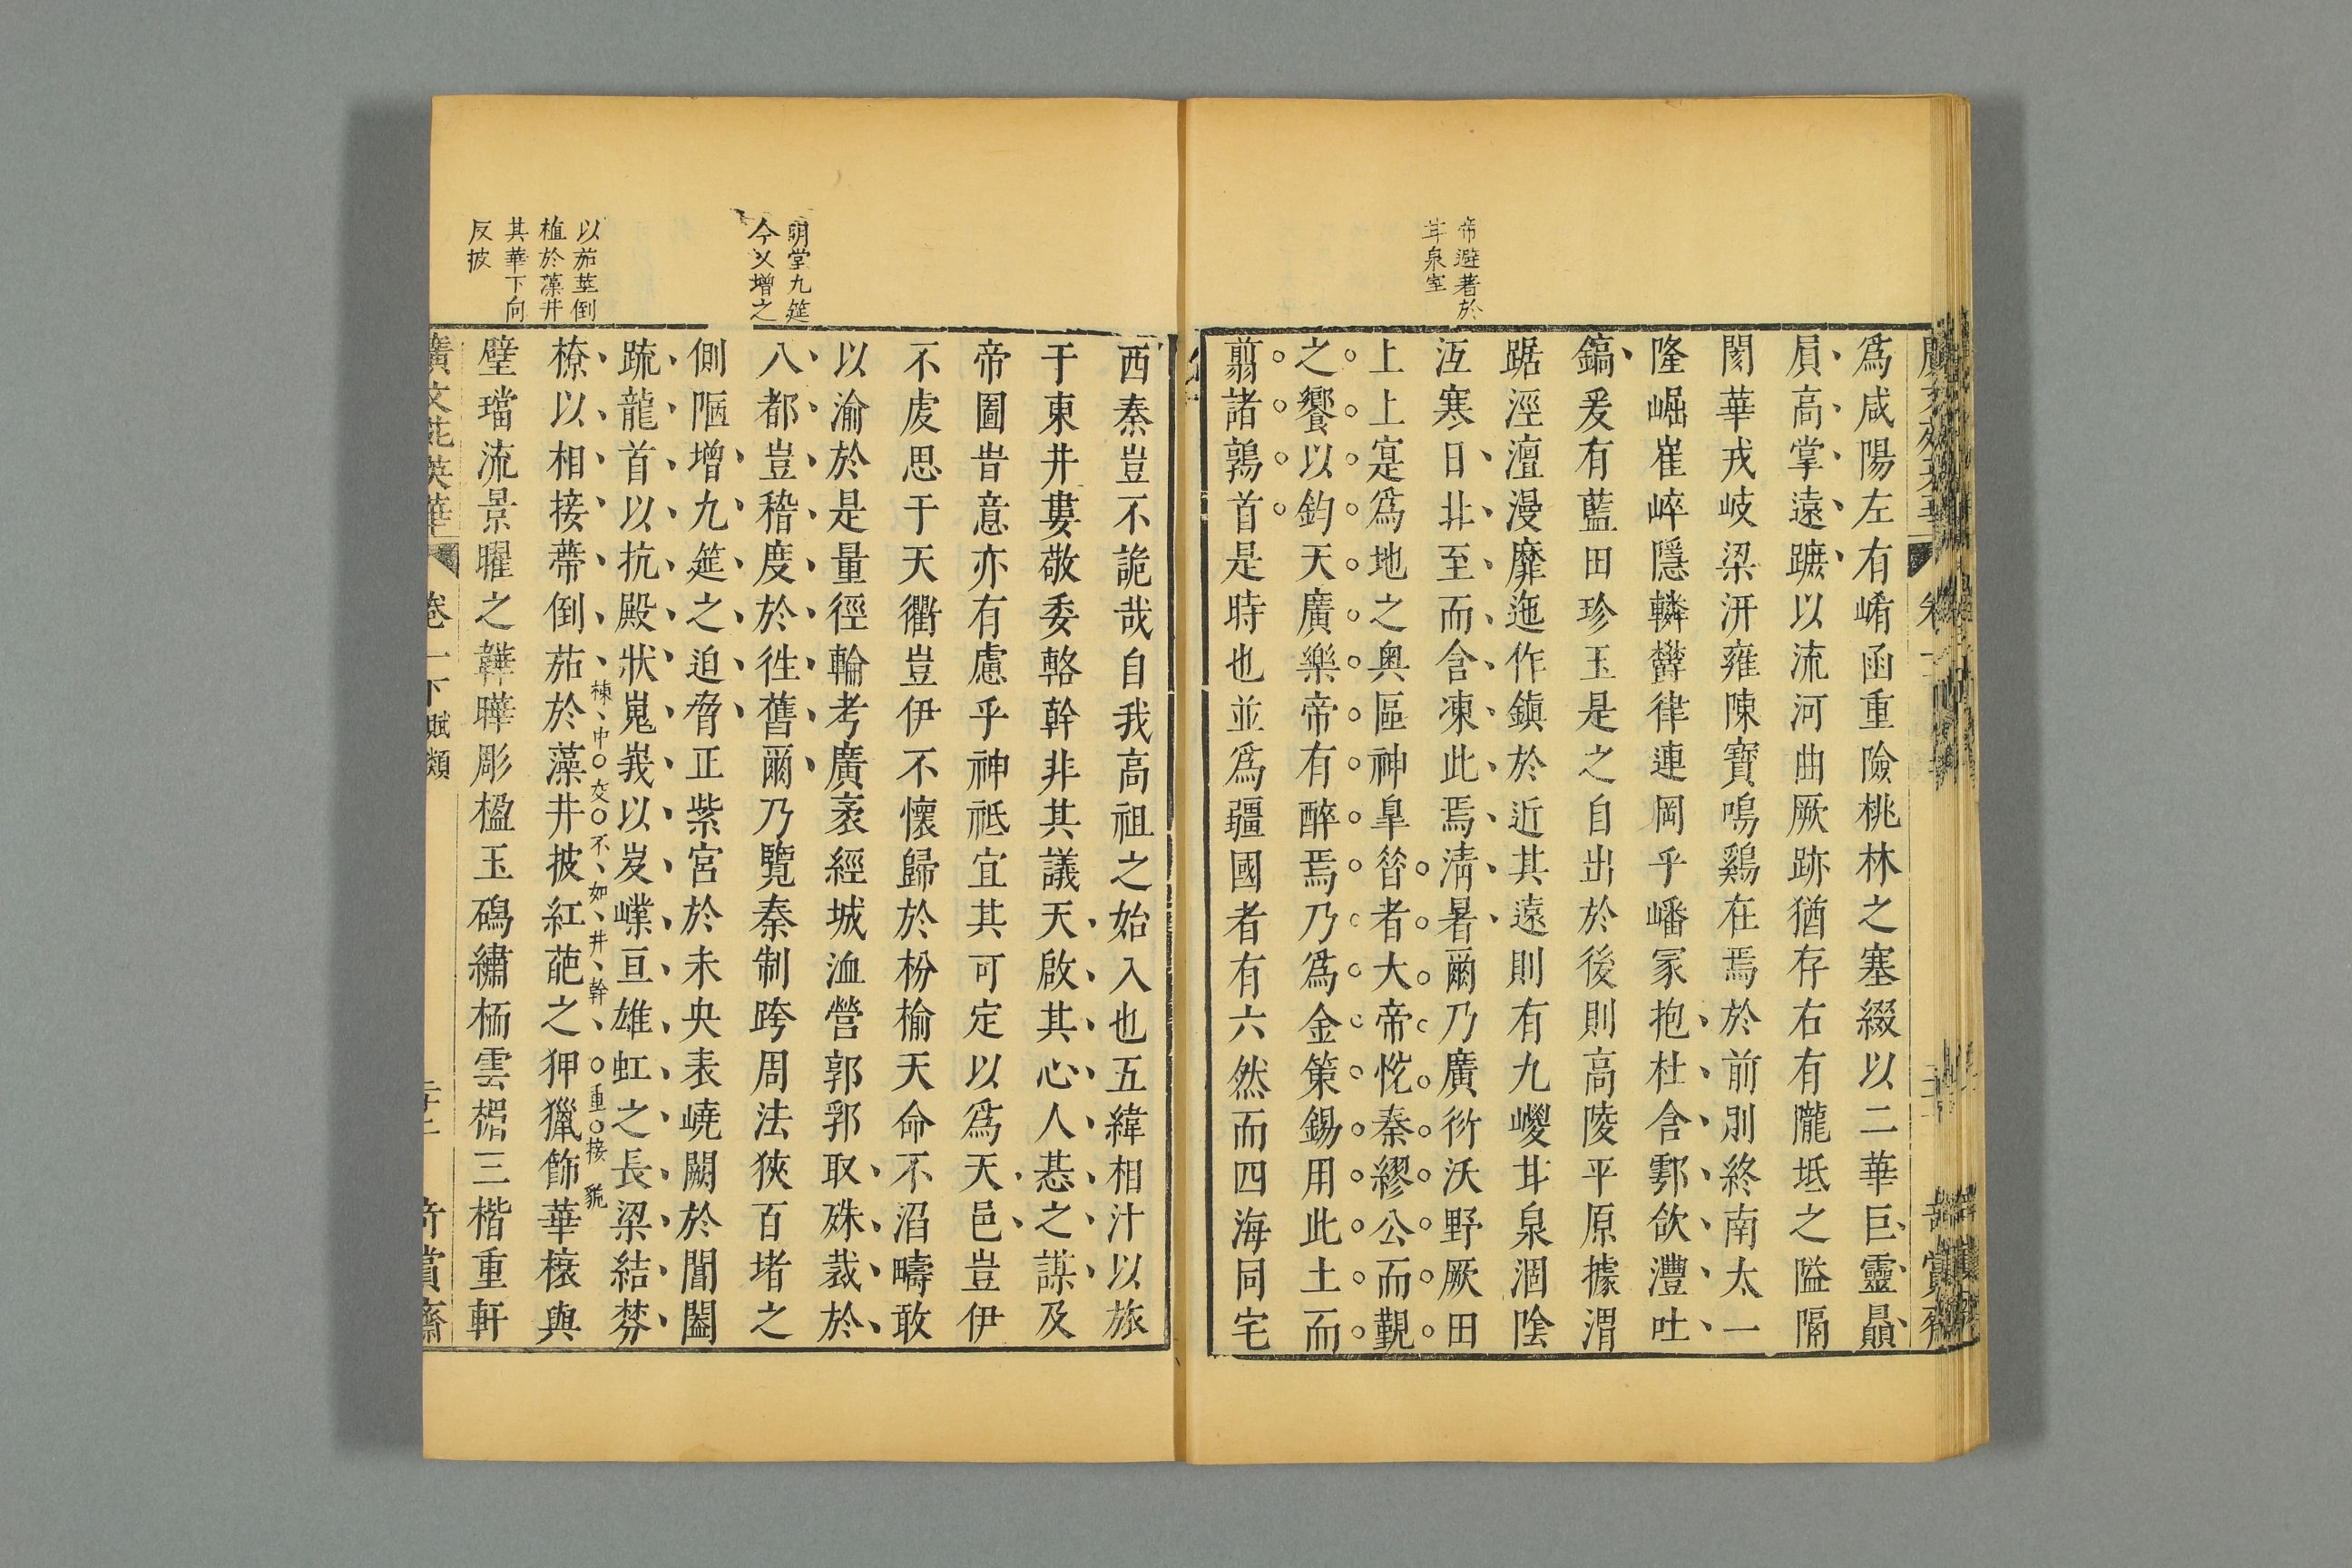 帝避暑於
甘泉室
爲咸陽左有崤函重險桃林之塞綴以二華巨靈贔
屓高掌遠蹠以流河曲厥跡猶存右有隴坻之隘隔
閡華戎岐梁汧雍陳寶鳴鷄在焉於前則終南太一
隆崛崔崪隱轔鬱律連岡乎嶓冢抱杜含鄠欱灃吐
鎬爰有藍田珍玉是之自出於後則高陵平原據渭
踞涇澶漫靡迤作鎮於近其遠則有九嵕甘泉涸陰
沍寒日北至而含凍此焉淸暑爾乃廣衍沃野厥田
上上寔爲地之奥區神臯昝者大帝恱秦繆公而覲
之饗以鈞天廣樂帝有醉焉乃爲金策錫用此土而
翦諸鶉首是時也並爲疆國者有六然而四海同宅
明堂九筵
今又增之
以茄莖倒
植於藻井
其華下向
反披
西秦豈不詭哉自我高祖之始入也五緯相汁以旅
于東井婁敬委輅幹非其議天啟其心人惎之謀及
帝圖旹意亦有慮乎神祗宜其可定以爲天邑豈伊
不虔思于天衢豈伊不懷歸於枌榆天命不滔疇敢
以渝於是量徑輪考廣袤經城洫營郭郛取殊裁於
八都豈稽度於徃舊爾乃覽秦制跨周法狹百堵之
側陋增九筵之迫脅正紫宮於未央表嶢闕於閶闔
疏龍首以抗殿狀嵬峩以岌嶪亘雄虹之長梁結棼
橑以相接蔕倒茄於藻井披紅葩之狎獵飾華榱與
棟中交不如井幹重接貌
璧璫流景曜之韡曄彫楹玉磶繡栭雲楣三楷重軒
廣文苑英華 卷一下 賦類 奇賞齋